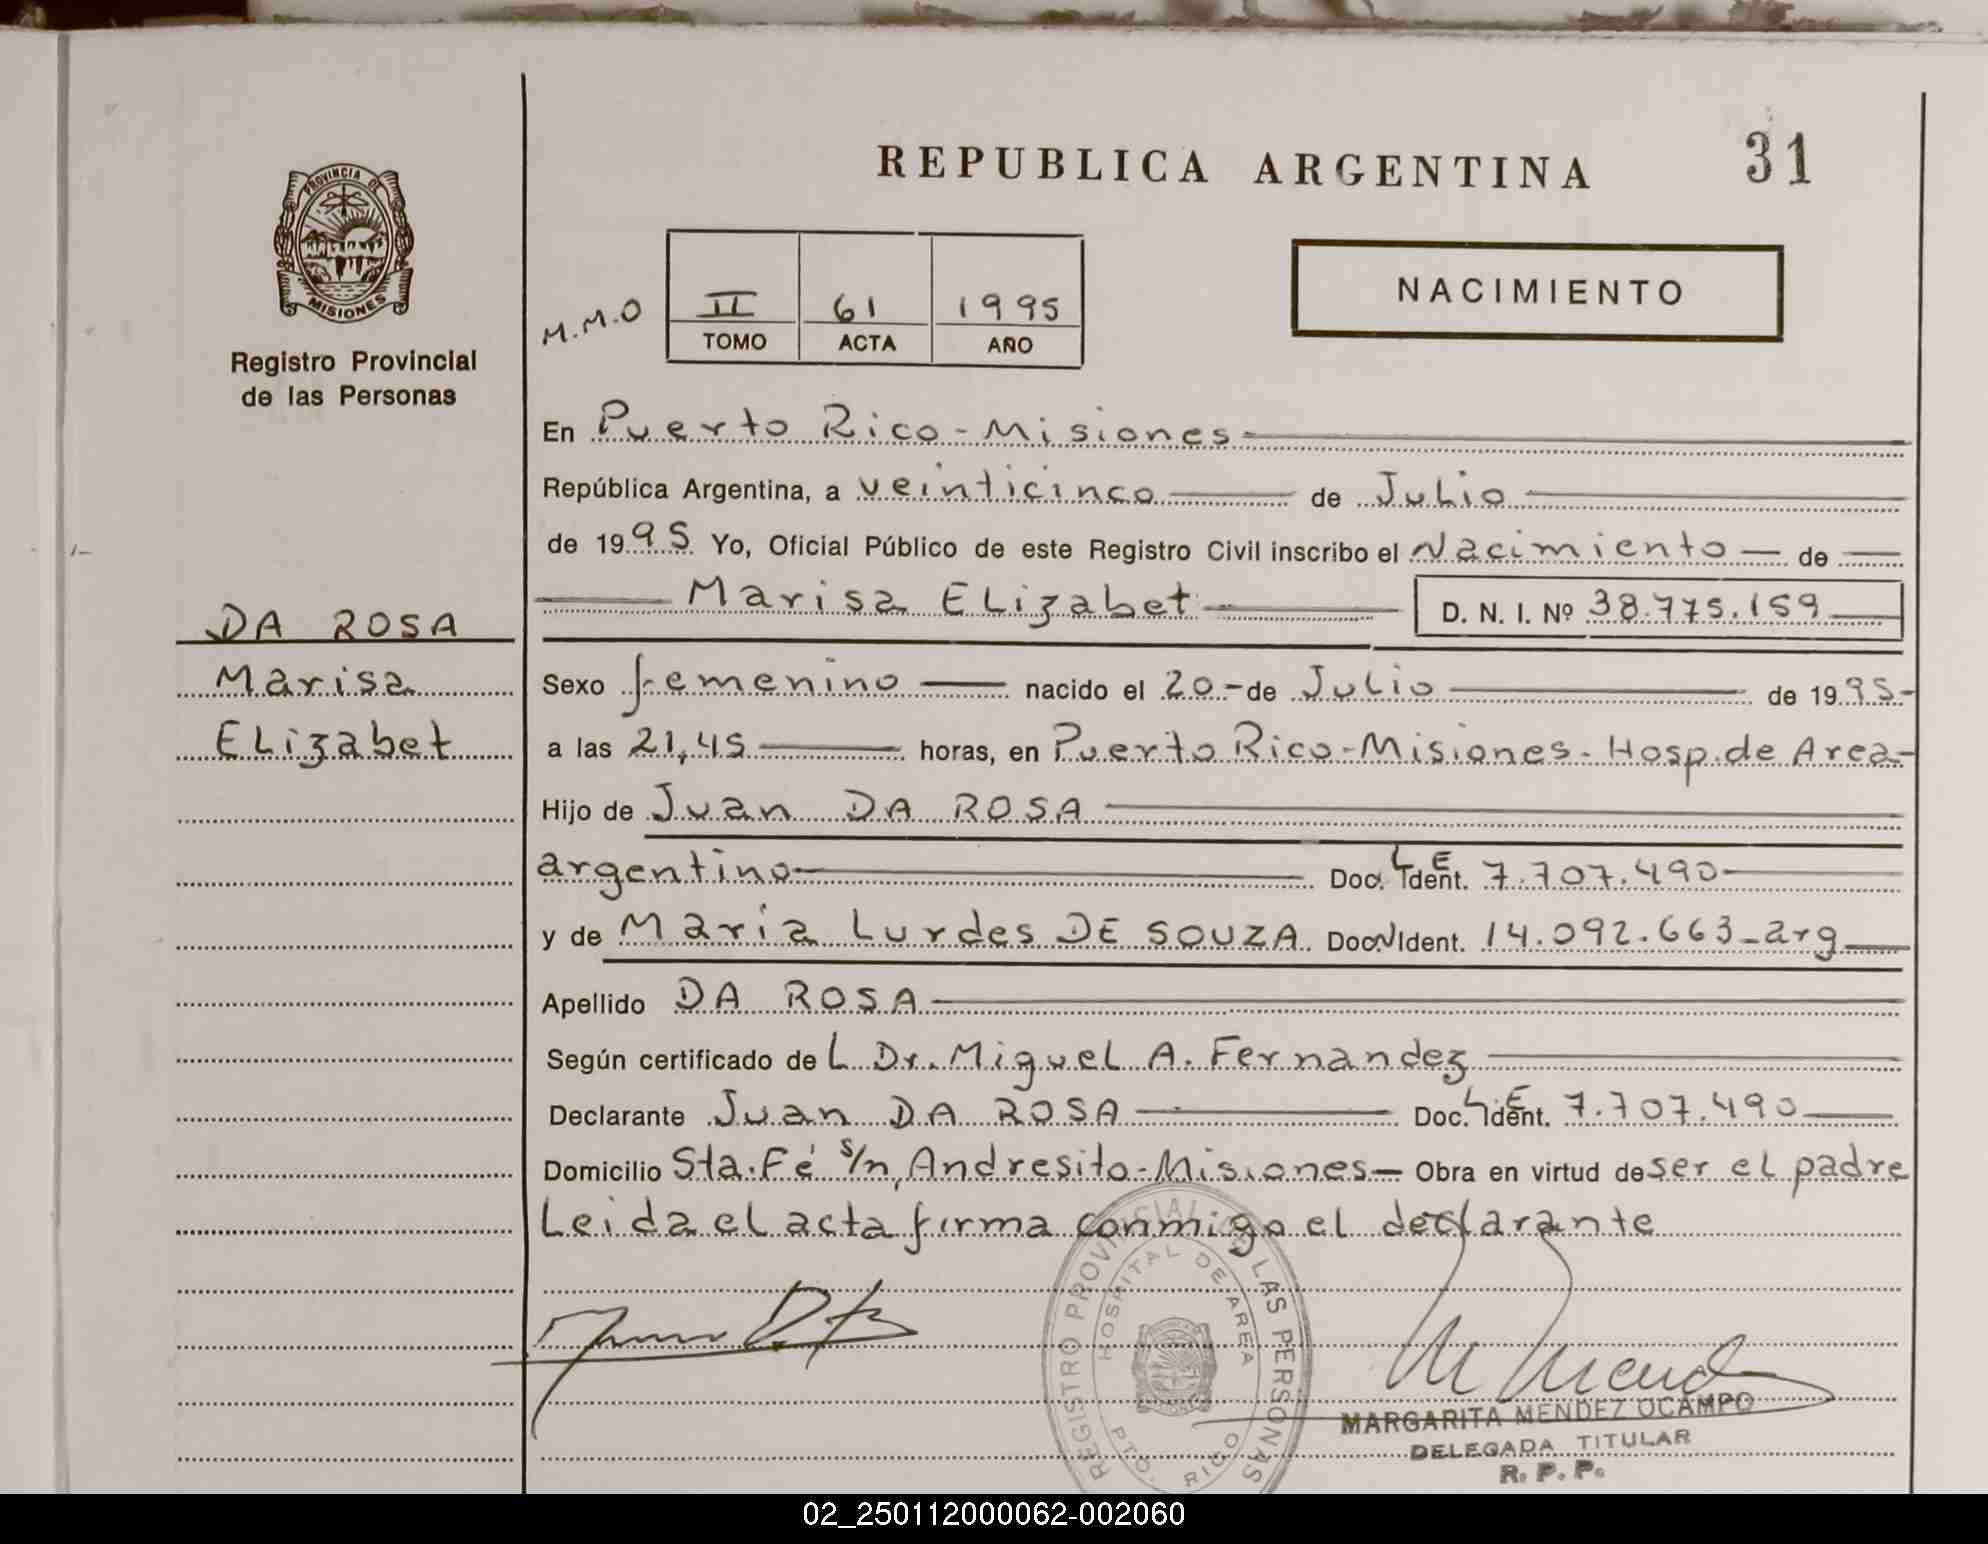 REPUBLICA ARGENTINA 31
PROVINCIA DE
MISIONES
Registro Provincial
de las Personas
M.M.O
II 61 1995
TOMO ACTA AÑO
NACIMIENTO
En Puerto Rico - Misiones
República Argentina, a veinticinco de Julio
de 1995 Yo, Oficial Público de este Registro Civil inscribo el Nacimiento de
Marisa Elizabet D. N. I. Nº 38.775.159
DA ROSA
Marisa
Elizabet
Sexo femenino nacido el 20-de Julio de 1995-
a las 21,45 horas, en Puerto Rico-Misiones- Hosp. de Area-
Hijo de Juan DA ROSA
argentino Doc. Ident. L E 7.707.490
y de Maria Lurdes DE SOUZA Doc. Ident. 14.092.663-arg
Apellido DA ROSA
Según certificado de L Dr. Miguel A. Fernandez
Declarante Juan DA ROSA Doc. Ident. L E 7.707.490
Domicilio Sta. Fé s/n, Andresito-Misiones- Obra en virtud de ser el padre
Leida el acta firma conmigo el declarante
REGISTRO PROVINCIAL DE LAS PERSONAS
HOSPITAL DE AREA
PTO. RICO
MARGARITA MENDEZ OCAMPO
DELEGADA TITULAR
R. P. P.
02_250112000062-002060